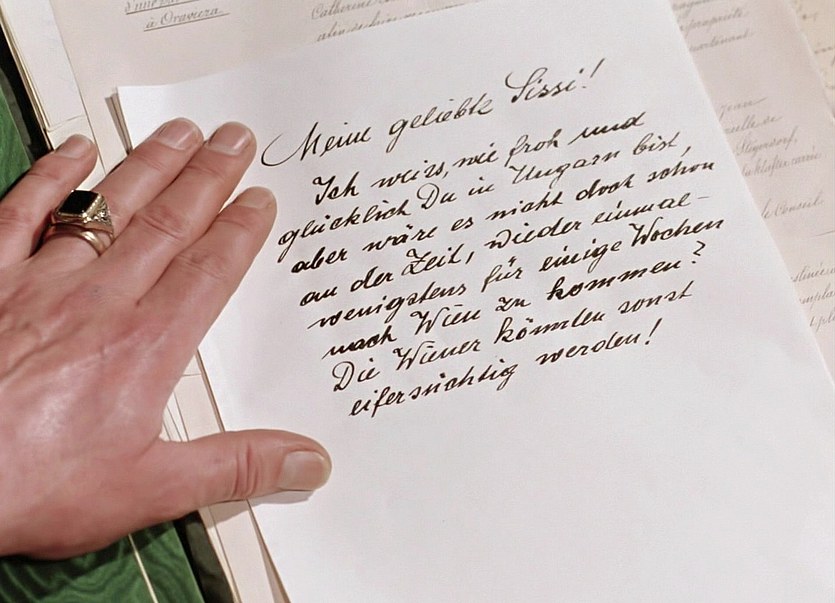 d'une
à Oravicza.
Catherine
Meine geliebte Sissi!
Ich weiss, wie froh und
glücklich Du in Ungarn bist,
aber wäre es nicht doch schon
an der Zeit, wieder einmal-
wenigstens für einige Wochen
nach Wien zu kommen?
Die Wiener könnten sonst
eifersüchtig werden!
propriété
Jean
de
le Conseil